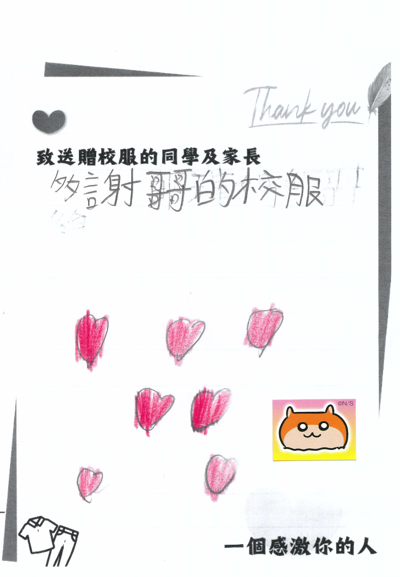 Thank you
致送贈校服的同學及家長
多謝哥哥的校服
©N/S
一個感激你的人